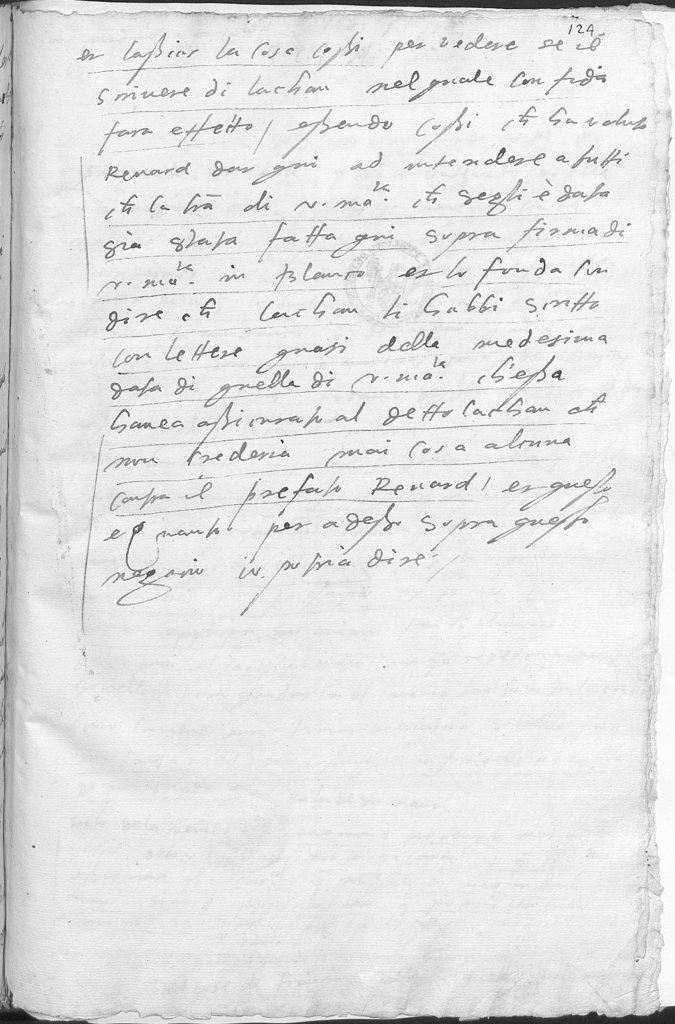 124
et laßiar la cosa coßi per vedere se il
scrivere di lachau nel quale confida
fara effetto / eßendo coßi ch̃ ha voluto
Renard dar qui ad intendere a tutti
ch̃ la lrã di v. ma.ta ch̃ segli è data
sia stata fatta qui sopra firma di
v. ma.ta in blanco et lo fonda con
dire ch̃ lachau li habbi scritto
con lettere quasi della medesima
data di quella di v. ma.ta ch'eßa
havea aßicurato al detto lachau ch̃
non crederia mai cosa alcuna
contra il prefato Renard / et questo
e quanto per adeßo sopra questo
negotio io potria dire